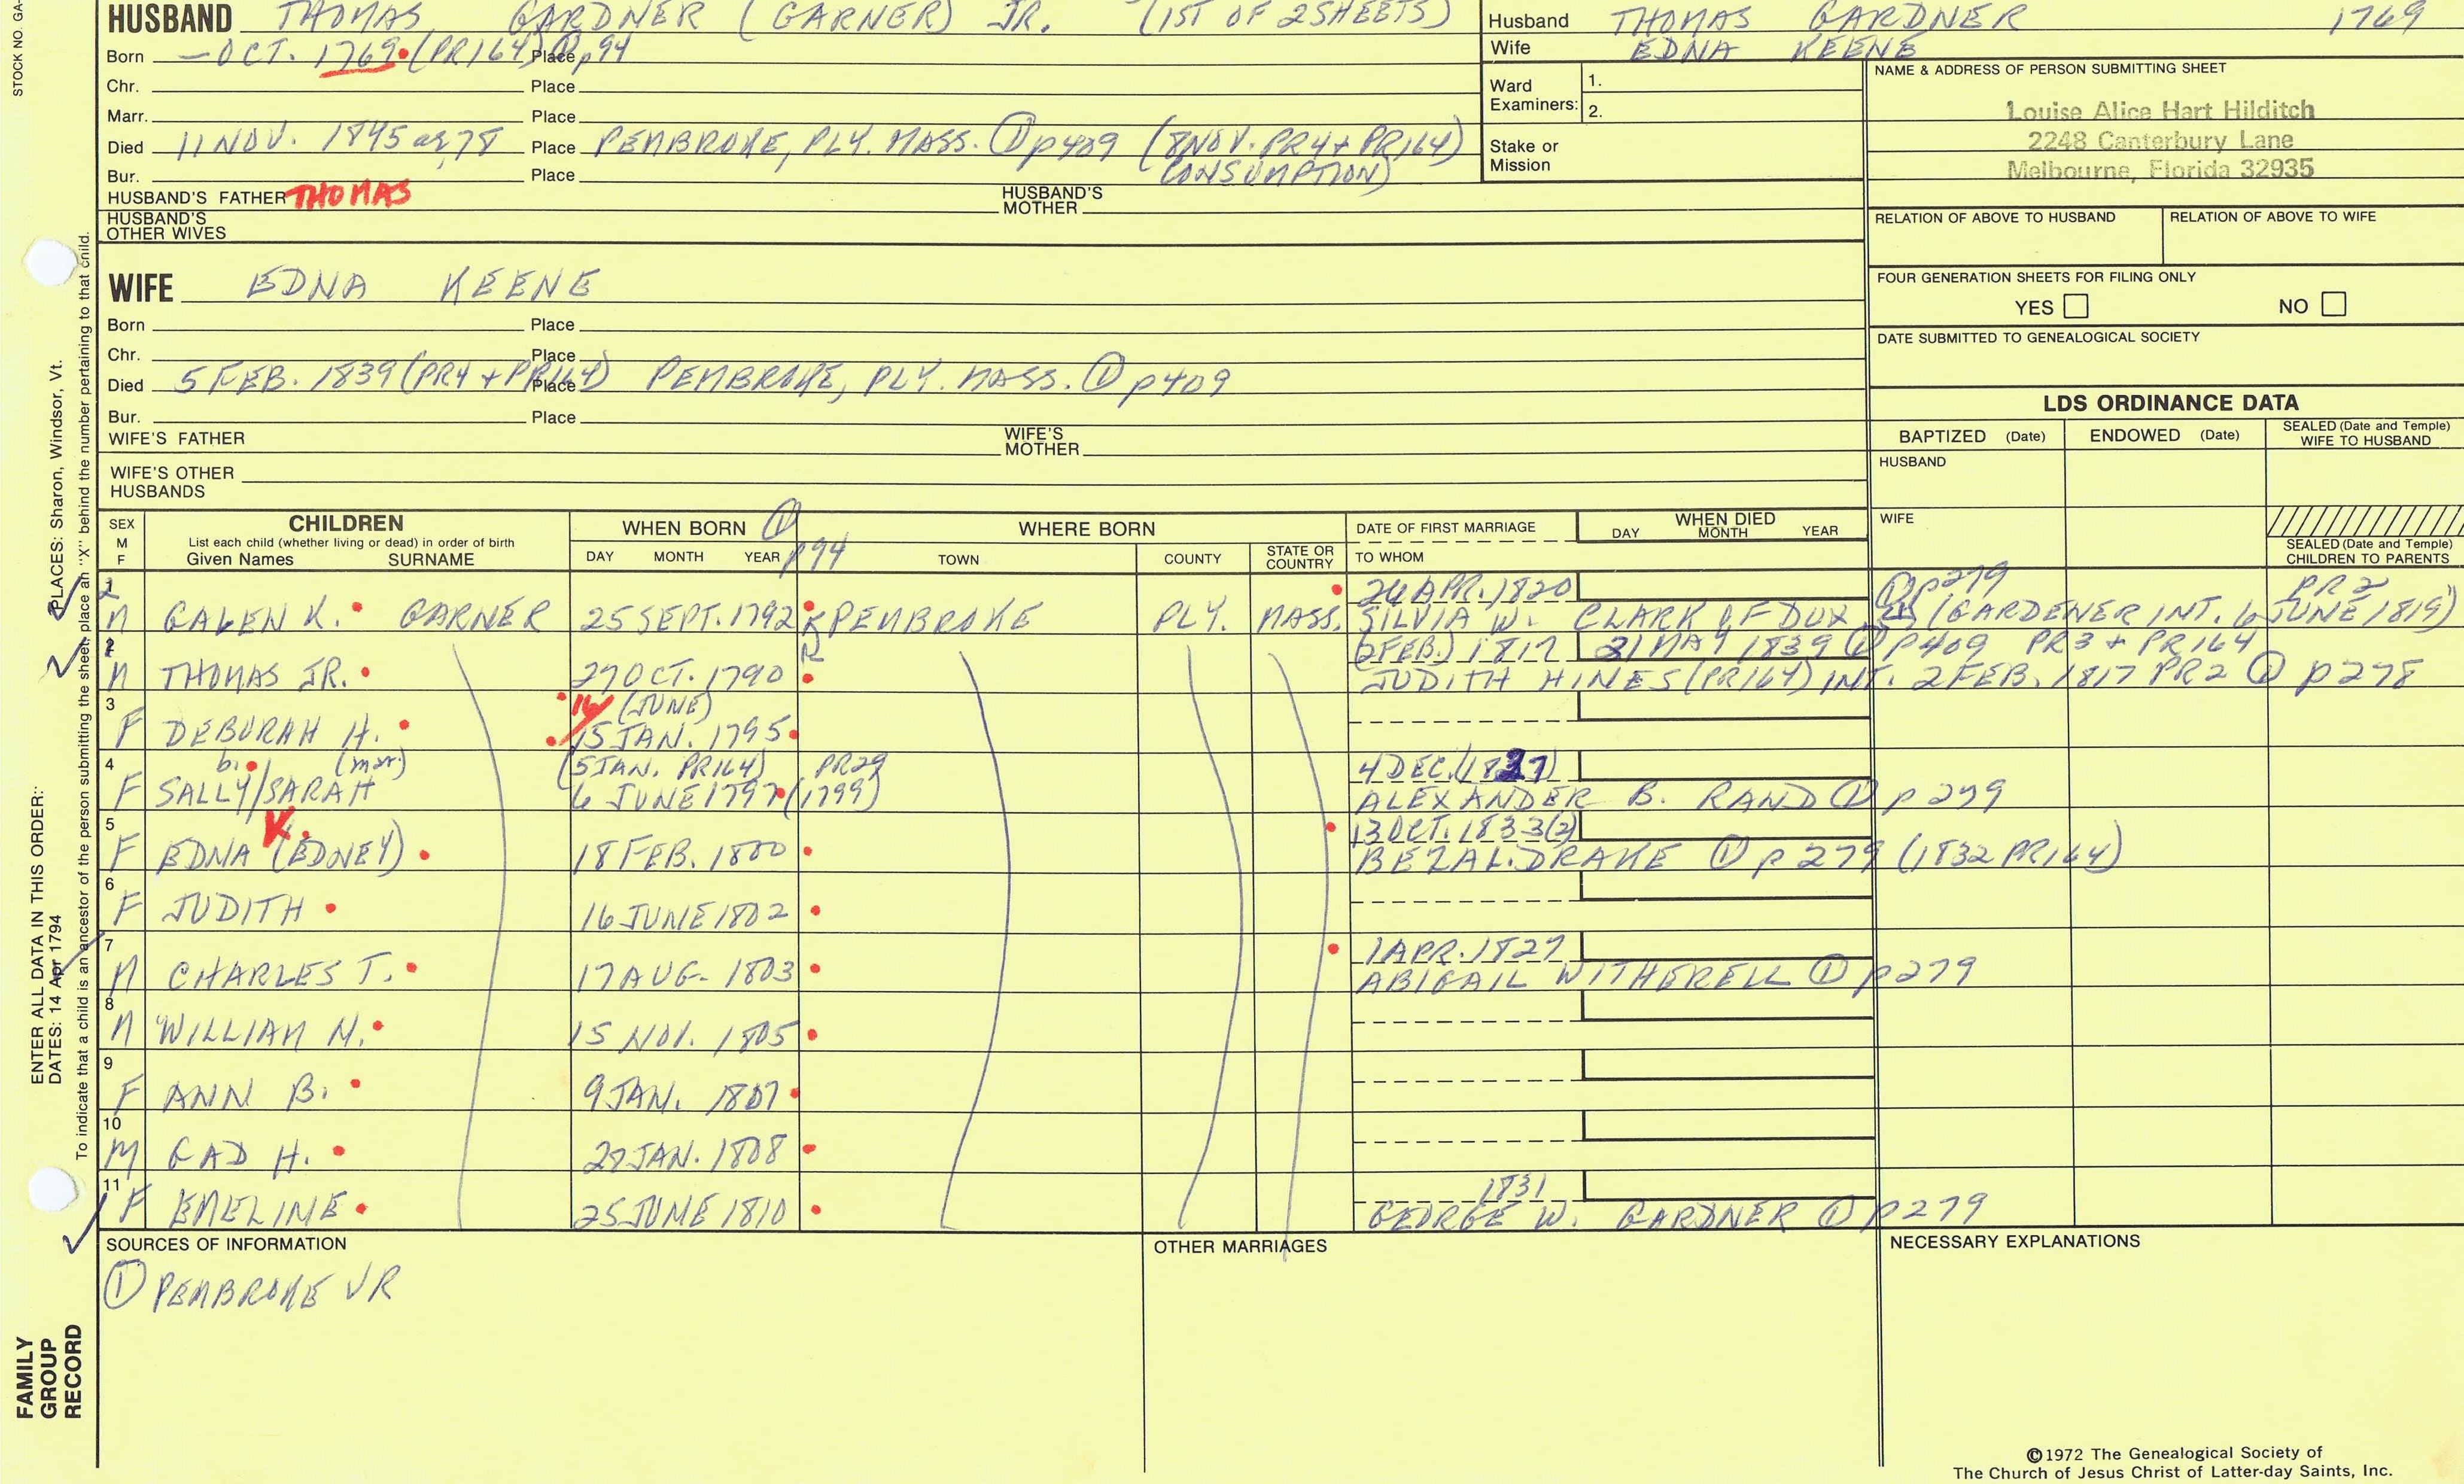 STOCK NO. GA-
HUSBAND THOMAS GARDNER (GARNER) JR. (1ST OF 2 SHEETS)
Born — OCT. 1769 (PR164) Place ① p94
Chr. Place
Marr. Place
Died 11 NOV. 1845 ae 78 Place PEMBROKE, PLY. MASS. ① p409 (8 NOV. PR4 + PR164)
Bur. Place CONSUMPTION)
HUSBAND'S FATHER THOMAS HUSBAND'S MOTHER
HUSBAND'S OTHER WIVES
Husband THOMAS GARDNER 1769
Wife EDNA KEENE
Ward Examiners: 1.
2.
Stake or Mission
NAME & ADDRESS OF PERSON SUBMITTING SHEET
Louise Alice Hart Hilditch
2248 Canterbury Lane
Melbourne, Florida 32935
RELATION OF ABOVE TO HUSBAND RELATION OF ABOVE TO WIFE
FOUR GENERATION SHEETS FOR FILING ONLY
YES NO
DATE SUBMITTED TO GENEALOGICAL SOCIETY
WIFE EDNA KEENE
Born Place
Chr. Place
Died 5 FEB. 1839 (PR4 + PR164) Place PEMBROKE, PLY. MASS. ① p409
Bur. Place
WIFE'S FATHER WIFE'S MOTHER
WIFE'S OTHER HUSBANDS
LDS ORDINANCE DATA
BAPTIZED (Date) ENDOWED (Date) SEALED (Date and Temple) WIFE TO HUSBAND
HUSBAND
WIFE
SEALED (Date and Temple) CHILDREN TO PARENTS
SEX M F
CHILDREN
List each child (whether living or dead) in order of birth
Given Names SURNAME
WHEN BORN ① p94
DAY MONTH YEAR
WHERE BORN
TOWN COUNTY STATE OR COUNTRY
DATE OF FIRST MARRIAGE
TO WHOM
WHEN DIED
DAY MONTH YEAR
26 APR. 1820 ① p279 PR2
M GALEN K. GARNER 25 SEPT. 1792 PEMBROKE PLY. MASS. SILVIA W. CLARK OF DUX (GARDENER INT. 6 JUNE 1819)
2 (2 FEB.) 1817 31 MAY 1839 ① p409 PR3 + PR164
M THOMAS JR. 27 OCT. 1790 JUDITH HINES (PR164) INT. 2 FEB. 1817 PR2 ① p278
3 14 (JUNE)
F DEBORAH H. 15 JAN. 1795
4 b. (mar.) (5 JAN. PR164) PR29 4 DEC. (1827)
F SALLY/SARAH 6 JUNE 1797 (1799) ALEXANDER B. RAND ① p279
5 K. 13 OCT. 1833 (2)
F EDNA (EDNEY) 18 FEB. 1800 BEZAL. DRAKE ① p279 (1832 PR164)
6
F JUDITH 16 JUNE 1802
7 1 APR. 1827
M CHARLES T. 17 AUG. 1803 ABIGAIL WITHERELL ① p279
8
M WILLIAM M. 15 NOV. 1805
9
F ANN B. 9 JAN. 1807
10
M GAD H. 27 JAN. 1808
11 1831
F EMELINE 25 JUNE 1810 GEORGE W. GARDNER ① p279
SOURCES OF INFORMATION
① PEMBROKE VR
OTHER MARRIAGES
NECESSARY EXPLANATIONS
ENTER ALL DATA IN THIS ORDER:
DATES: 14 Apr 1794 PLACES: Sharon, Windsor, Vt.
To indicate that a child is an ancestor of the person submitting the sheet, place an "X" behind the number pertaining to that child.
FAMILY
GROUP
RECORD
©1972 The Genealogical Society of
The Church of Jesus Christ of Latter-day Saints, Inc.